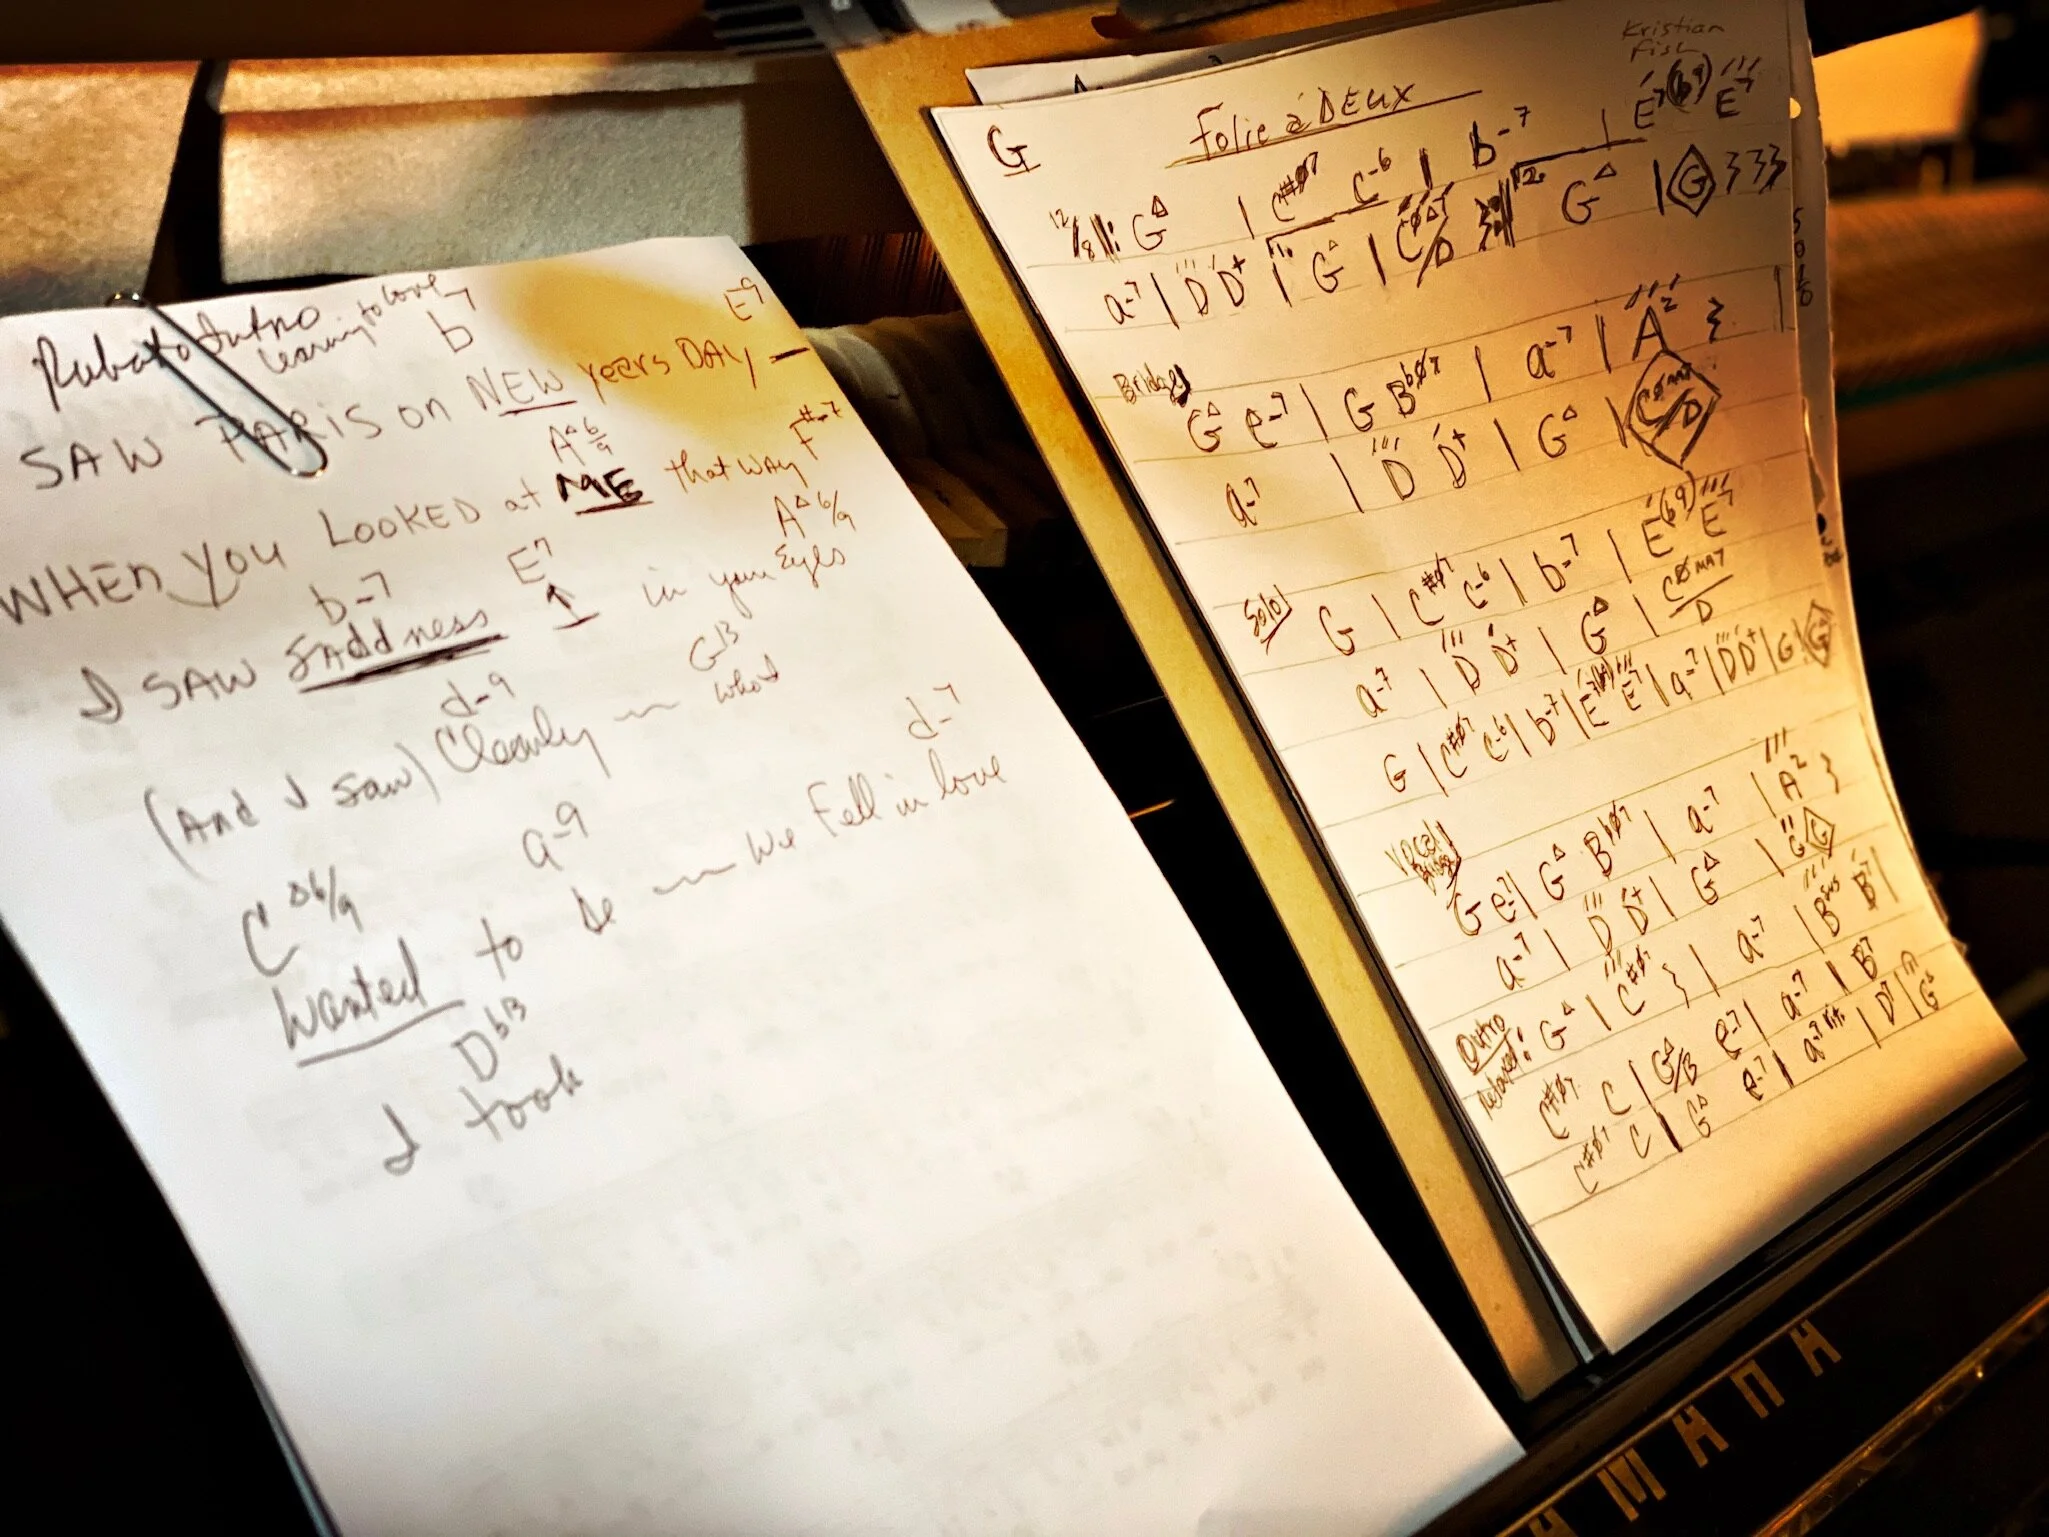 Rubato Intro
learning to love
b-7 E-9
SAW PARIS on NEW years DAY —
A△6/9 F#-7
WHEN YOU LOOKED at ME that WAY
b-7 E7 A△6/9
I SAW SAddness I in your Eyes
d-9 G13
(And I saw) Clearly what
C△6/9 a-9 d-7
Wanted to be We Fell in love
Db13
I took
Kristian
Fish
G Folie à DEUX
12/8 ||: G△ | C#ø7 C-6 | b-7 | E7(b9) E7
a-7 | D D+ | 1. G△ | C△7/D :|| 2. G△ | G
Bridge
G△ e-7 | G Bbø7 | a-7 | A2
a-7 | D D+ | G△ | CMA7/D
Solo
G | C#ø7 C-6 | b-7 | E(b9) E7
a-7 | D D+ | G△ | CMA7/D
G | C#ø7 C-6 | b-7 | E7(b9) E7 | a-7 | D D+ | G | G
Vocal Bridge
G e-7 | G△ Bbø7 | a-7 | A2
a-7 | D D+ | G△ | G G
Outro
Relaxed: G△ | C#ø7 | a-7 | Bsus B7 |
C#ø7 C | G△/B e-7 | a-7 | B7
C#ø7 C | G△ e-7 | a-7 rit. | D7 | G△
YAMAHA